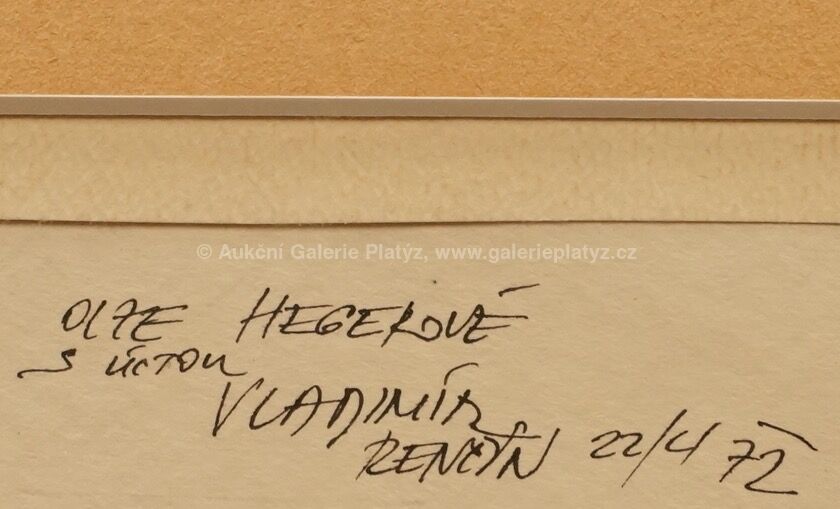 © Aukční Galerie Platýz, www.galerieplatyz.cz
OLZE HEGEROVÉ
S ÚCTOU
VLADIMÍR
RENČÍN 22/4 72